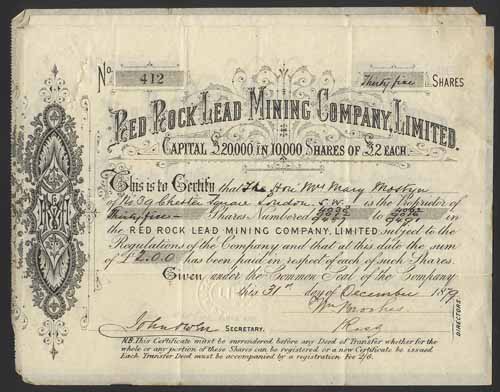 No. 412 Thirty five SHARES
RED ROCK LEAD MINING COMPANY, LIMITED.
CAPITAL £20,000 IN 10,000 SHARES OF £2 EACH.
This is to Certify that The Hon: Mrs Mary Mostyn
of No 39 Chester Square London S.W. is the Proprietor of
Thirty five Shares Numbered to in
the RED ROCK LEAD MINING COMPANY, LIMITED subject to the
Regulations of the Company and that at this date the sum
of £2.0.0 has been paid in respect of each of such Shares.
Given under the Common Seal of the Company
this 31st day of December 1879
DIRECTORS.
John SECRETARY.
N.B. This Certificate must be surrendered before any Deed of Transfer whether for the
whole or any portion of these Shares can be registered or a new Certificate be issued
Each Transfer Deed must be accompanied by a registration Fee 2/6.